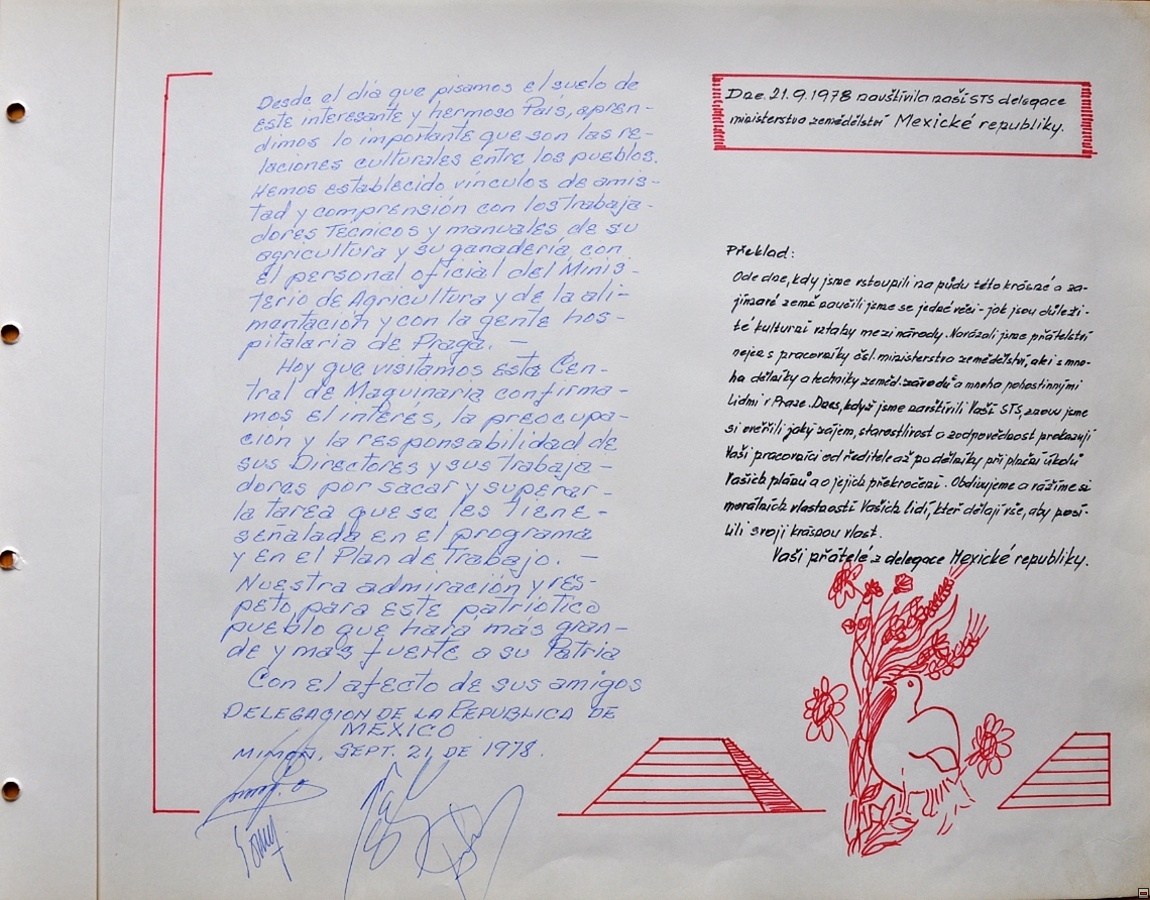 Desde el día que pisamos el suelo de
este interesante y hermoso País, apren-
dimos lo importante que son las re-
laciones culturales entre los pueblos.
Hemos establecido vínculos de amis-
tad y comprensión con los trabaja-
dores Técnicos y manuales de su
agricultura y su ganadería, con
el personal oficial del Minis-
terio de Agricultura y de la ali-
mentación y con la gente hos-
pitalaria de Praga. —
Hoy que visitamos esta Cen-
tral de Maquinaria confirma-
mos el interes, la preocupa-
ción y la responsabilidad de
sus Directores y sus trabaja-
dores por sacar y superar-
la tarea que se les tiene-
señalada en el programa
y en el Plan de Trabajo. —
Nuestra admiración y res-
peto, para este patriótico
pueblo que hará más gran-
de y mas fuerte a su Patria
Con el afecto de sus amigos
DELEGACION DE LA REPUBLICA DE
MEXICO
MIMOŇ, SEPT. 21, DE 1978.
Dne 21.9.1978 navštívila naší STS delegace
ministerstva zemědělství Mexické republiky.
Překlad:
Ode dne, kdy jsme vstoupili na půdu této krásné a za-
jímavé země naučili jsme se jedné věci - jak jsou důleži-
té kulturní vztahy mezi národy. Navázali jsme přátelství
nejen s pracovníky čsl. ministerstva zemědělství, ale i s mno-
ha dělníky a techniky zeměd. závodů a mnoha pohostinnými
lidmi v Praze. Dnes, když jsme navštívili Vaší STS, znovu jsme
si ověřili jaký zájem, starostlivost a zodpovědnost prokazují
Vaši pracovníci od ředitele až po dělníky při plnění úkolů
Vašich plánů a o jejich překročení. Obdivujeme a vážíme si
morálních vlastností Vašich lidí, kteří dělají vše, aby posí-
lili svoji krásnou vlast.
Vaši přátelé z delegace Mexické republiky.